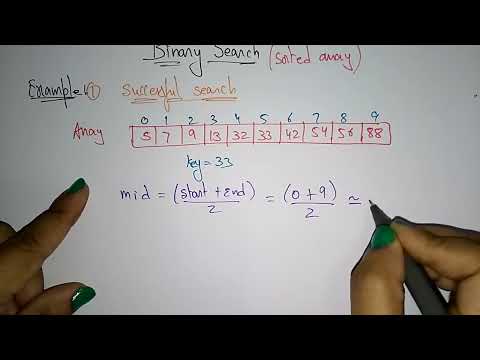 Binary Search (sorted array)
Example ① Succesful search
0 1 2 3 4 5 6 7 8 9
Array 5 7 9 13 32 33 42 54 56 88
key = 33
mid = (start + End)/2 = (0 + 9)/2 ≃